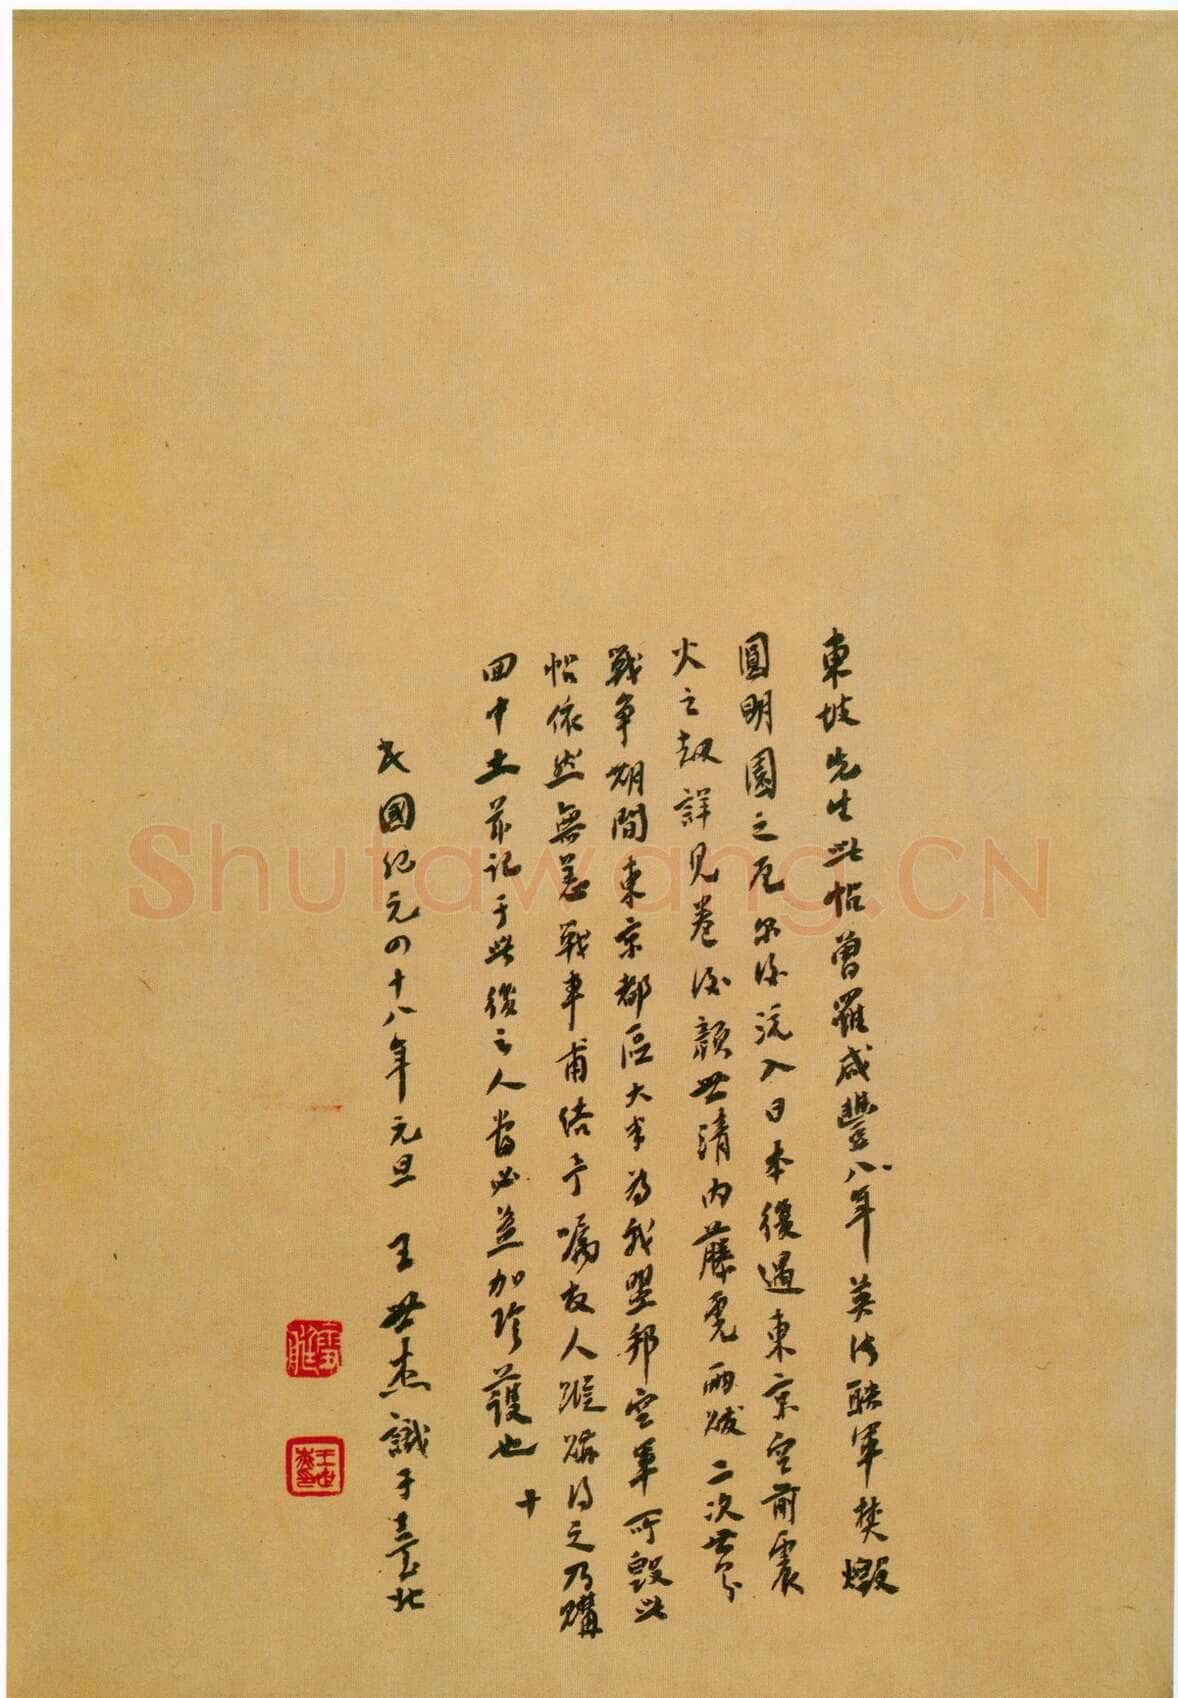 東坡先生此帖曾罹咸豐八年英法聯軍焚燬
圓明園之厄尔後流入日本復遇東京空前震
火之劫詳見卷後顏世清內藤虎兩跋二次世界
戰爭期間東京都區大半為我盟邦空軍所毀此
帖依然無恙戰事甫結予囑友人蹤跡得之乃購
回中土茲記于此後之人當必益加珍護也 十
民國紀元四十八年元旦 王世杰識于臺北
雪艇
王世杰印
Shufawang.CN